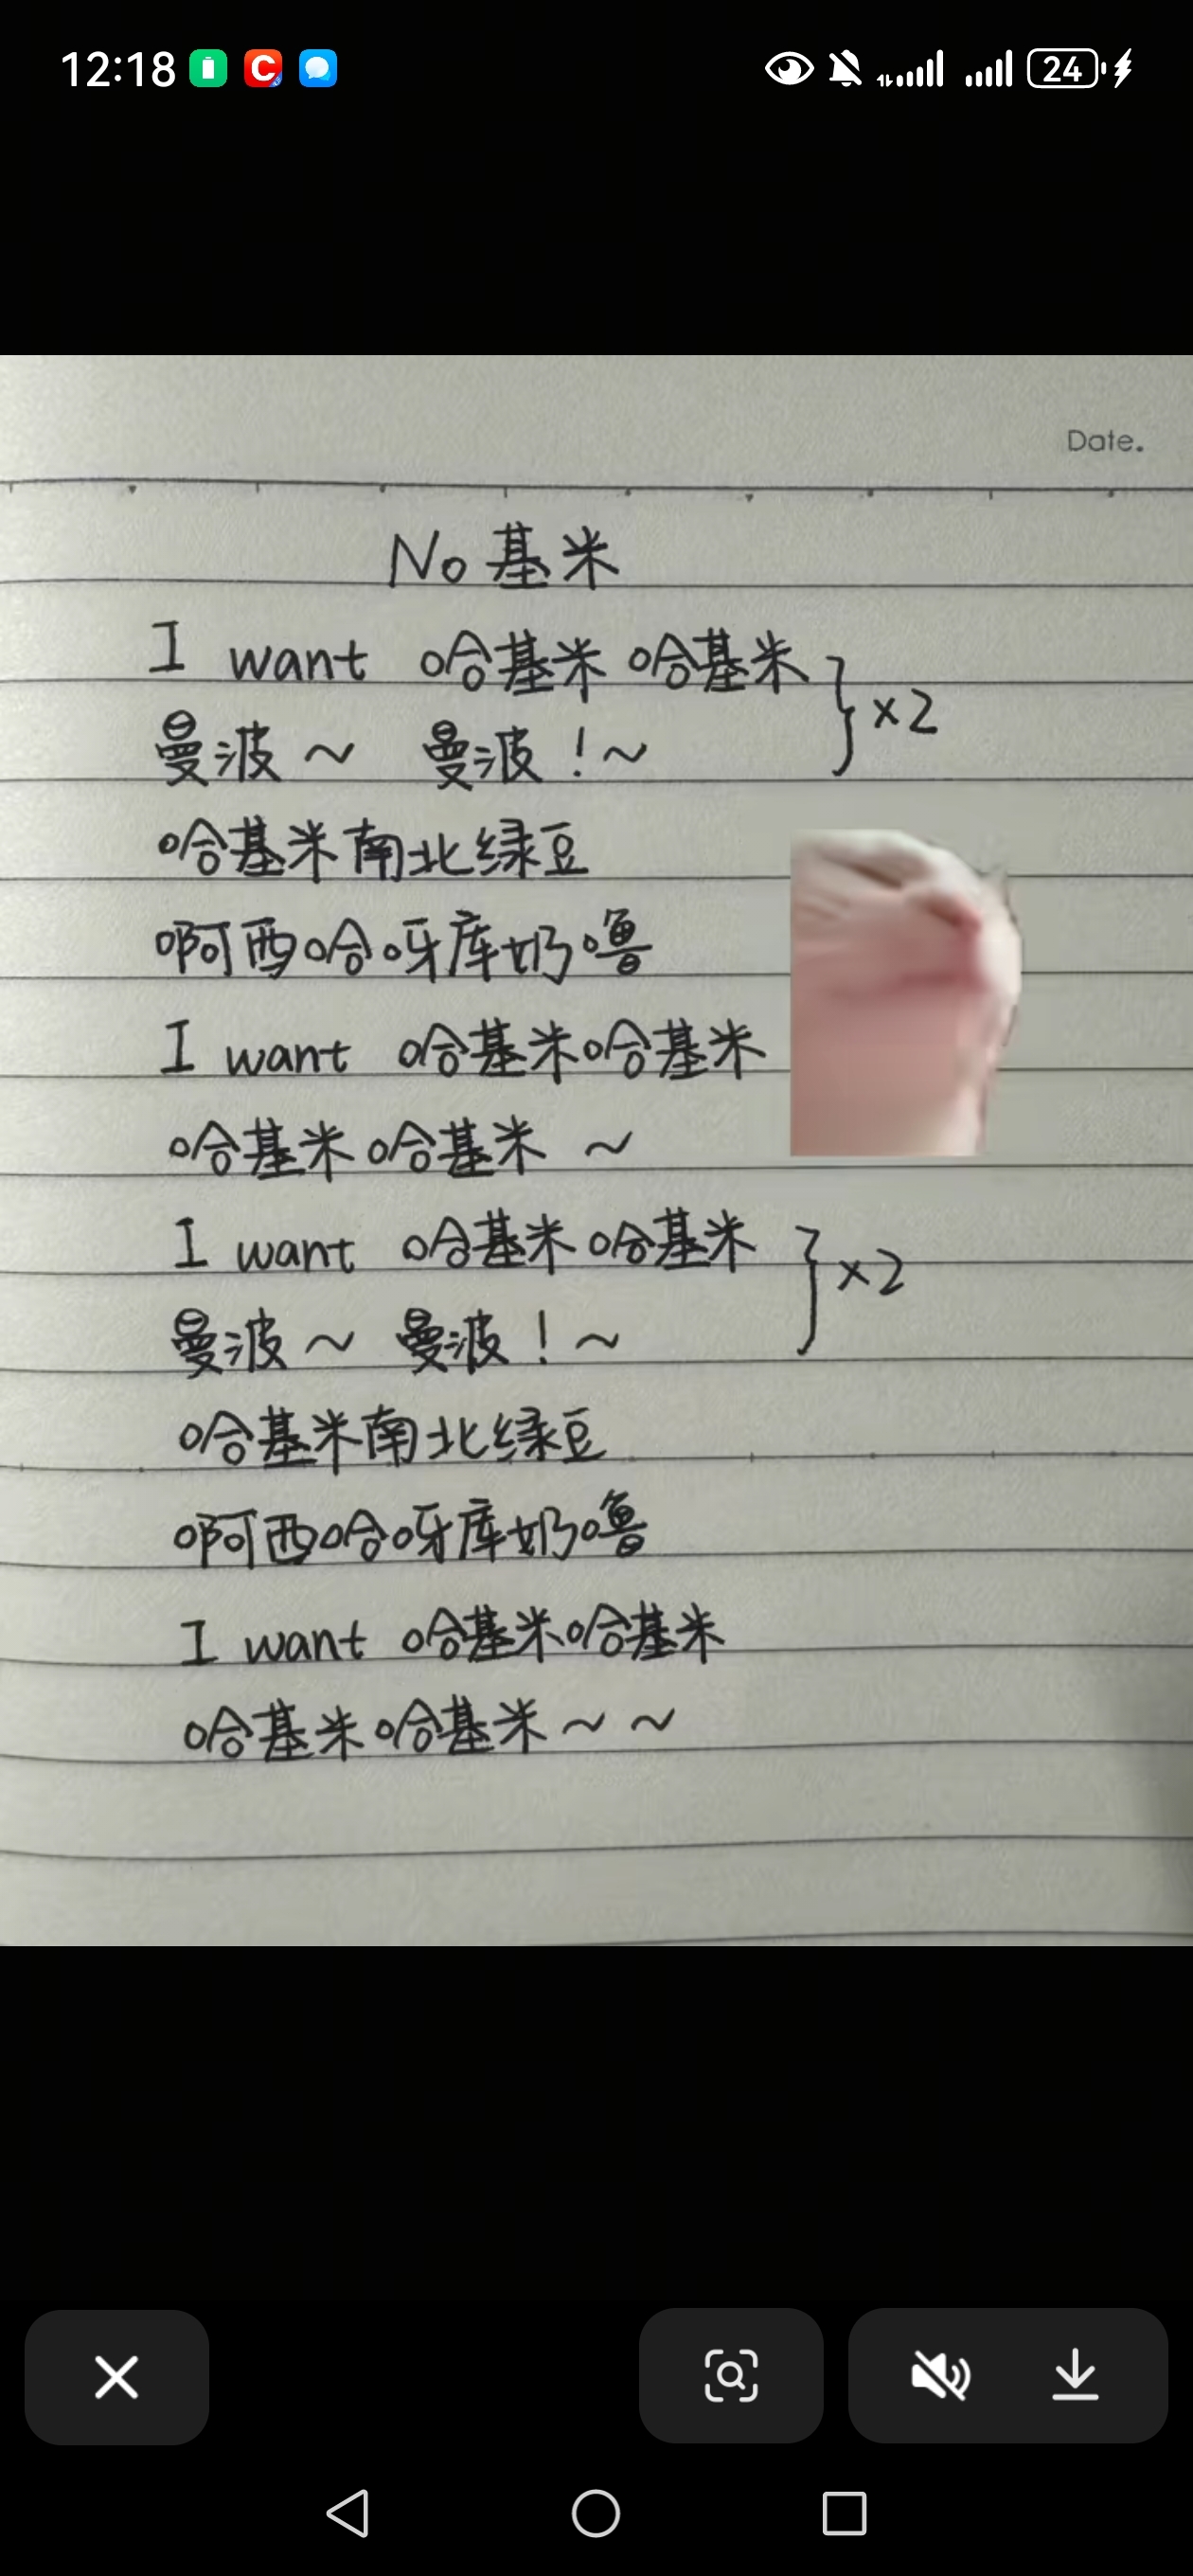 12:18
24
Date.
No 基米
I want 哈基米 哈基米 } ×2
曼波 ~ 曼波 ! ~
哈基米南北绿豆
啊西哈呀库奶噜
I want 哈基米哈基米
哈基米哈基米 ~
I want 哈基米哈基米 } ×2
曼波 ~ 曼波 ! ~
哈基米南北绿豆
啊西哈呀库奶噜
I want 哈基米哈基米
哈基米哈基米 ~ ~